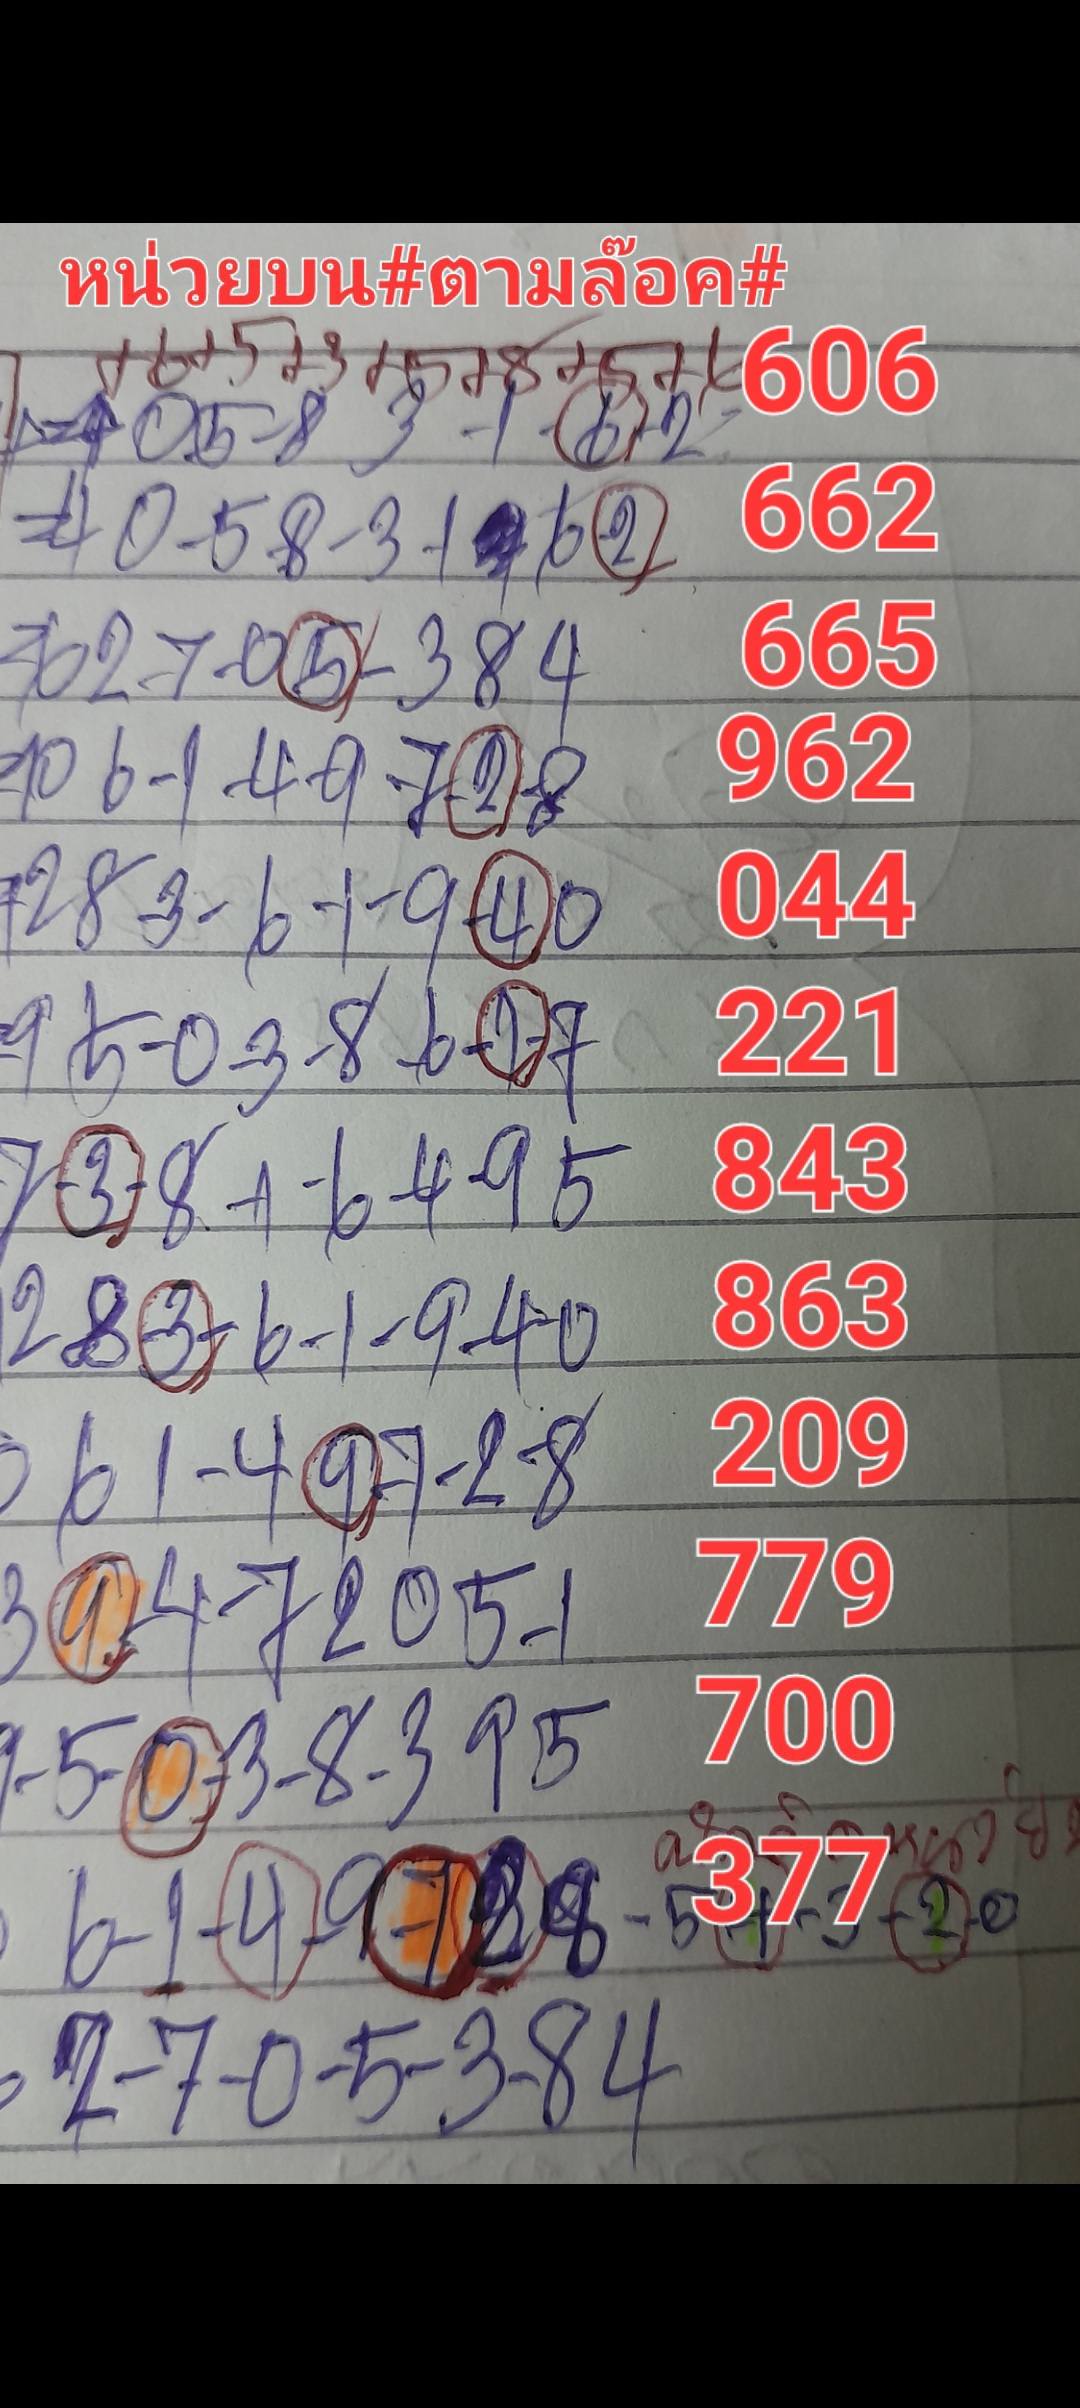 หน่วยบน#ตามล๊อค#
+6+5+3+5+8+5+6 606
=4 0 5-8 3-1-6-2 662
=4 0-5 8-3-1 6 2
=6 2-7-0 5-3 8 4 665
=0 6-1-4-9-7-2-8 962
=2 8 3-6-1-9-4 0 044
=9 5-0-3-8 6-1-7 221
7-3-8-1-6-4-9 5 843
2 8-3-6-1-9-4-0 863
0 6 1-4 9-7-2-8 209
3 9-4-7 2 0 5-1 779
9-5-0-3-8-3 9 5 700
6-1-4-9-7 2 8-5-1-3-2-0 377
2-7-0-5-3-8 4